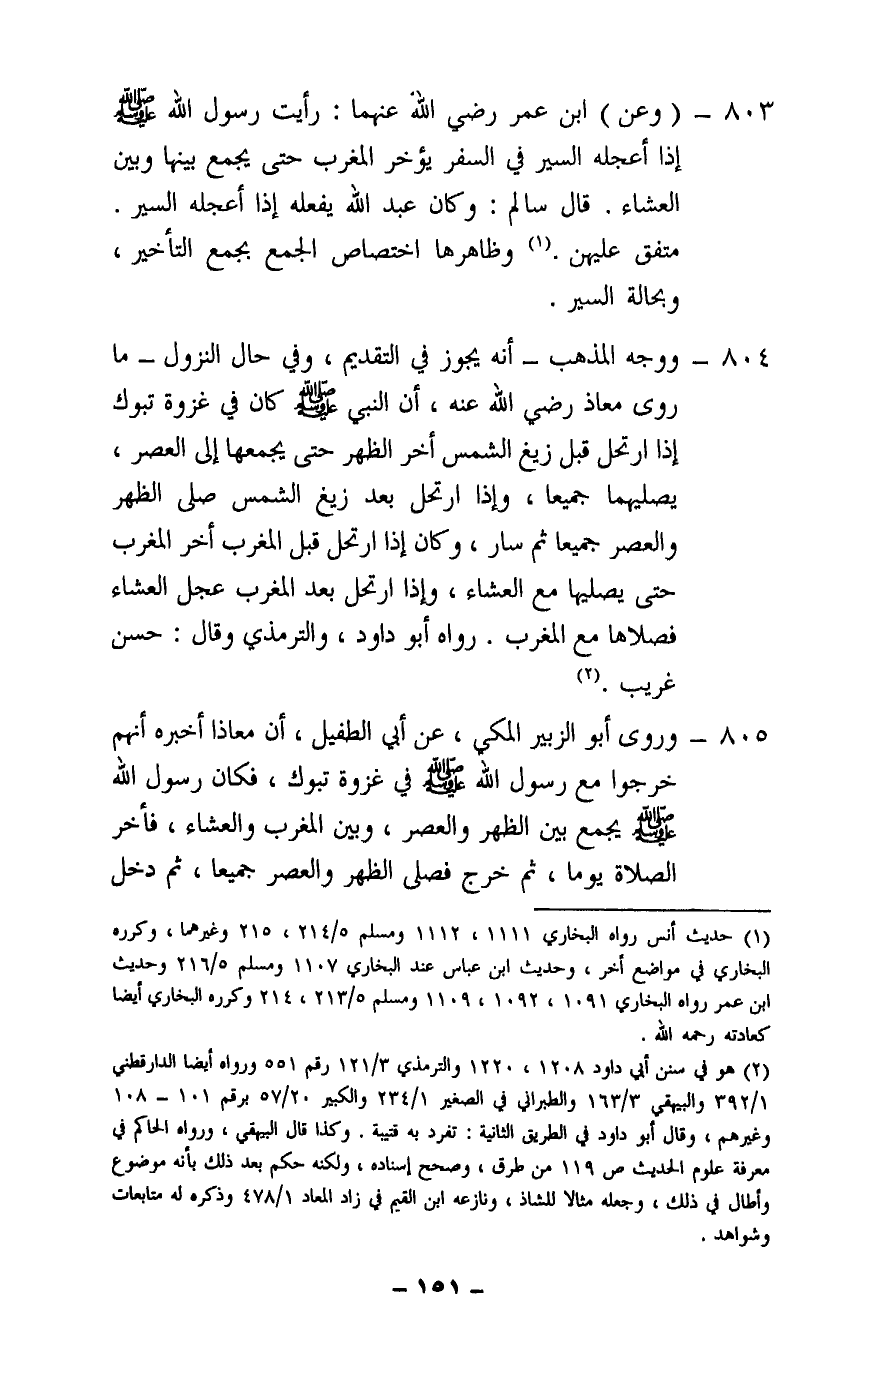 ٨٠٣ ــ ( وعن ) ابن عمر رضي الله عنهما : رأيت رسول الله ﷺ
إذا أعجله السير في السفر يؤخر المغرب حتى يجمع بينها وبين
العشاء . قال سالم : وكان عبد الله يفعله إذا أعجله السير .
متفق عليهن .(١) وظاهرها اختصاص الجمع بجمع التأخير ،
وبحالة السير .
٨٠٤ ــ ووجه المذهب ــ أنه يجوز في التقديم ، وفي حال النزول ــ ما
روى معاذ رضي الله عنه ، أن النبي ﷺ كان في غزوة تبوك
إذا ارتحل قبل زيغ الشمس أخر الظهر حتى يجمعها إلى العصر ،
يصليهما جميعا ، وإذا ارتحل بعد زيغ الشمس صلى الظهر
والعصر جميعا ثم سار ، وكان إذا ارتحل قبل المغرب أخر المغرب
حتى يصليها مع العشاء ، وإذا ارتحل بعد المغرب عجل العشاء
فصلاها مع المغرب . رواه أبو داود ، والترمذي وقال : حسن
غريب .(٢)
٨٠٥ ــ وروى أبو الزبير المكي ، عن أبي الطفيل ، أن معاذا أخبره أنهم
خرجوا مع رسول الله ﷺ في غزوة تبوك ، فكان رسول الله
ﷺ يجمع بين الظهر والعصر ، وبين المغرب والعشاء ، فأخر
الصلاة يوما ، ثم خرج فصلى الظهر والعصر جميعا ، ثم دخل
(١) حديث أنس رواه البخاري ١١١١ ، ١١١٢ ومسلم ٢١٤/٥ ، ٢١٥ وغيرهما ، وكرره
البخاري في مواضع أخر ، وحديث ابن عباس عند البخاري ١١٠٧ ومسلم ٢١٦/٥ وحديث
ابن عمر رواه البخاري ١٠٩١ ، ١٠٩٢ ، ١١٠٩ ومسلم ٢١٣/٥ ، ٢١٤ وكرره البخاري أيضا
كعادته رحمه الله .
(٢) هو في سنن أبي داود ١٢٠٨ ، ١٢٢٠ والترمذي ١٢١/٣ رقم ٥٥١ ورواه أيضا الدارقطني
٣٩٢/١ والبيهقي ١٦٣/٣ والطبراني في الصغير ٢٣٤/١ والكبير ٥٧/٢٠ برقم ١٠١ ــ ١٠٨
وغيرهم ، وقال أبو داود في الطريق الثانية : تفرد به قتيبة . وكذا قال البيهقي ، ورواه الحاكم في
معرفة علوم الحديث ص ١١٩ من طرق ، وصحح إسناده ، ولكنه حكم بعد ذلك بأنه موضوع
وأطال في ذلك ، وجعله مثالا للشاذ ، ونازعه ابن القيم في زاد المعاد ٤٧٨/١ وذكره له متابعات
وشواهد .
ــ ١٥١ ــ